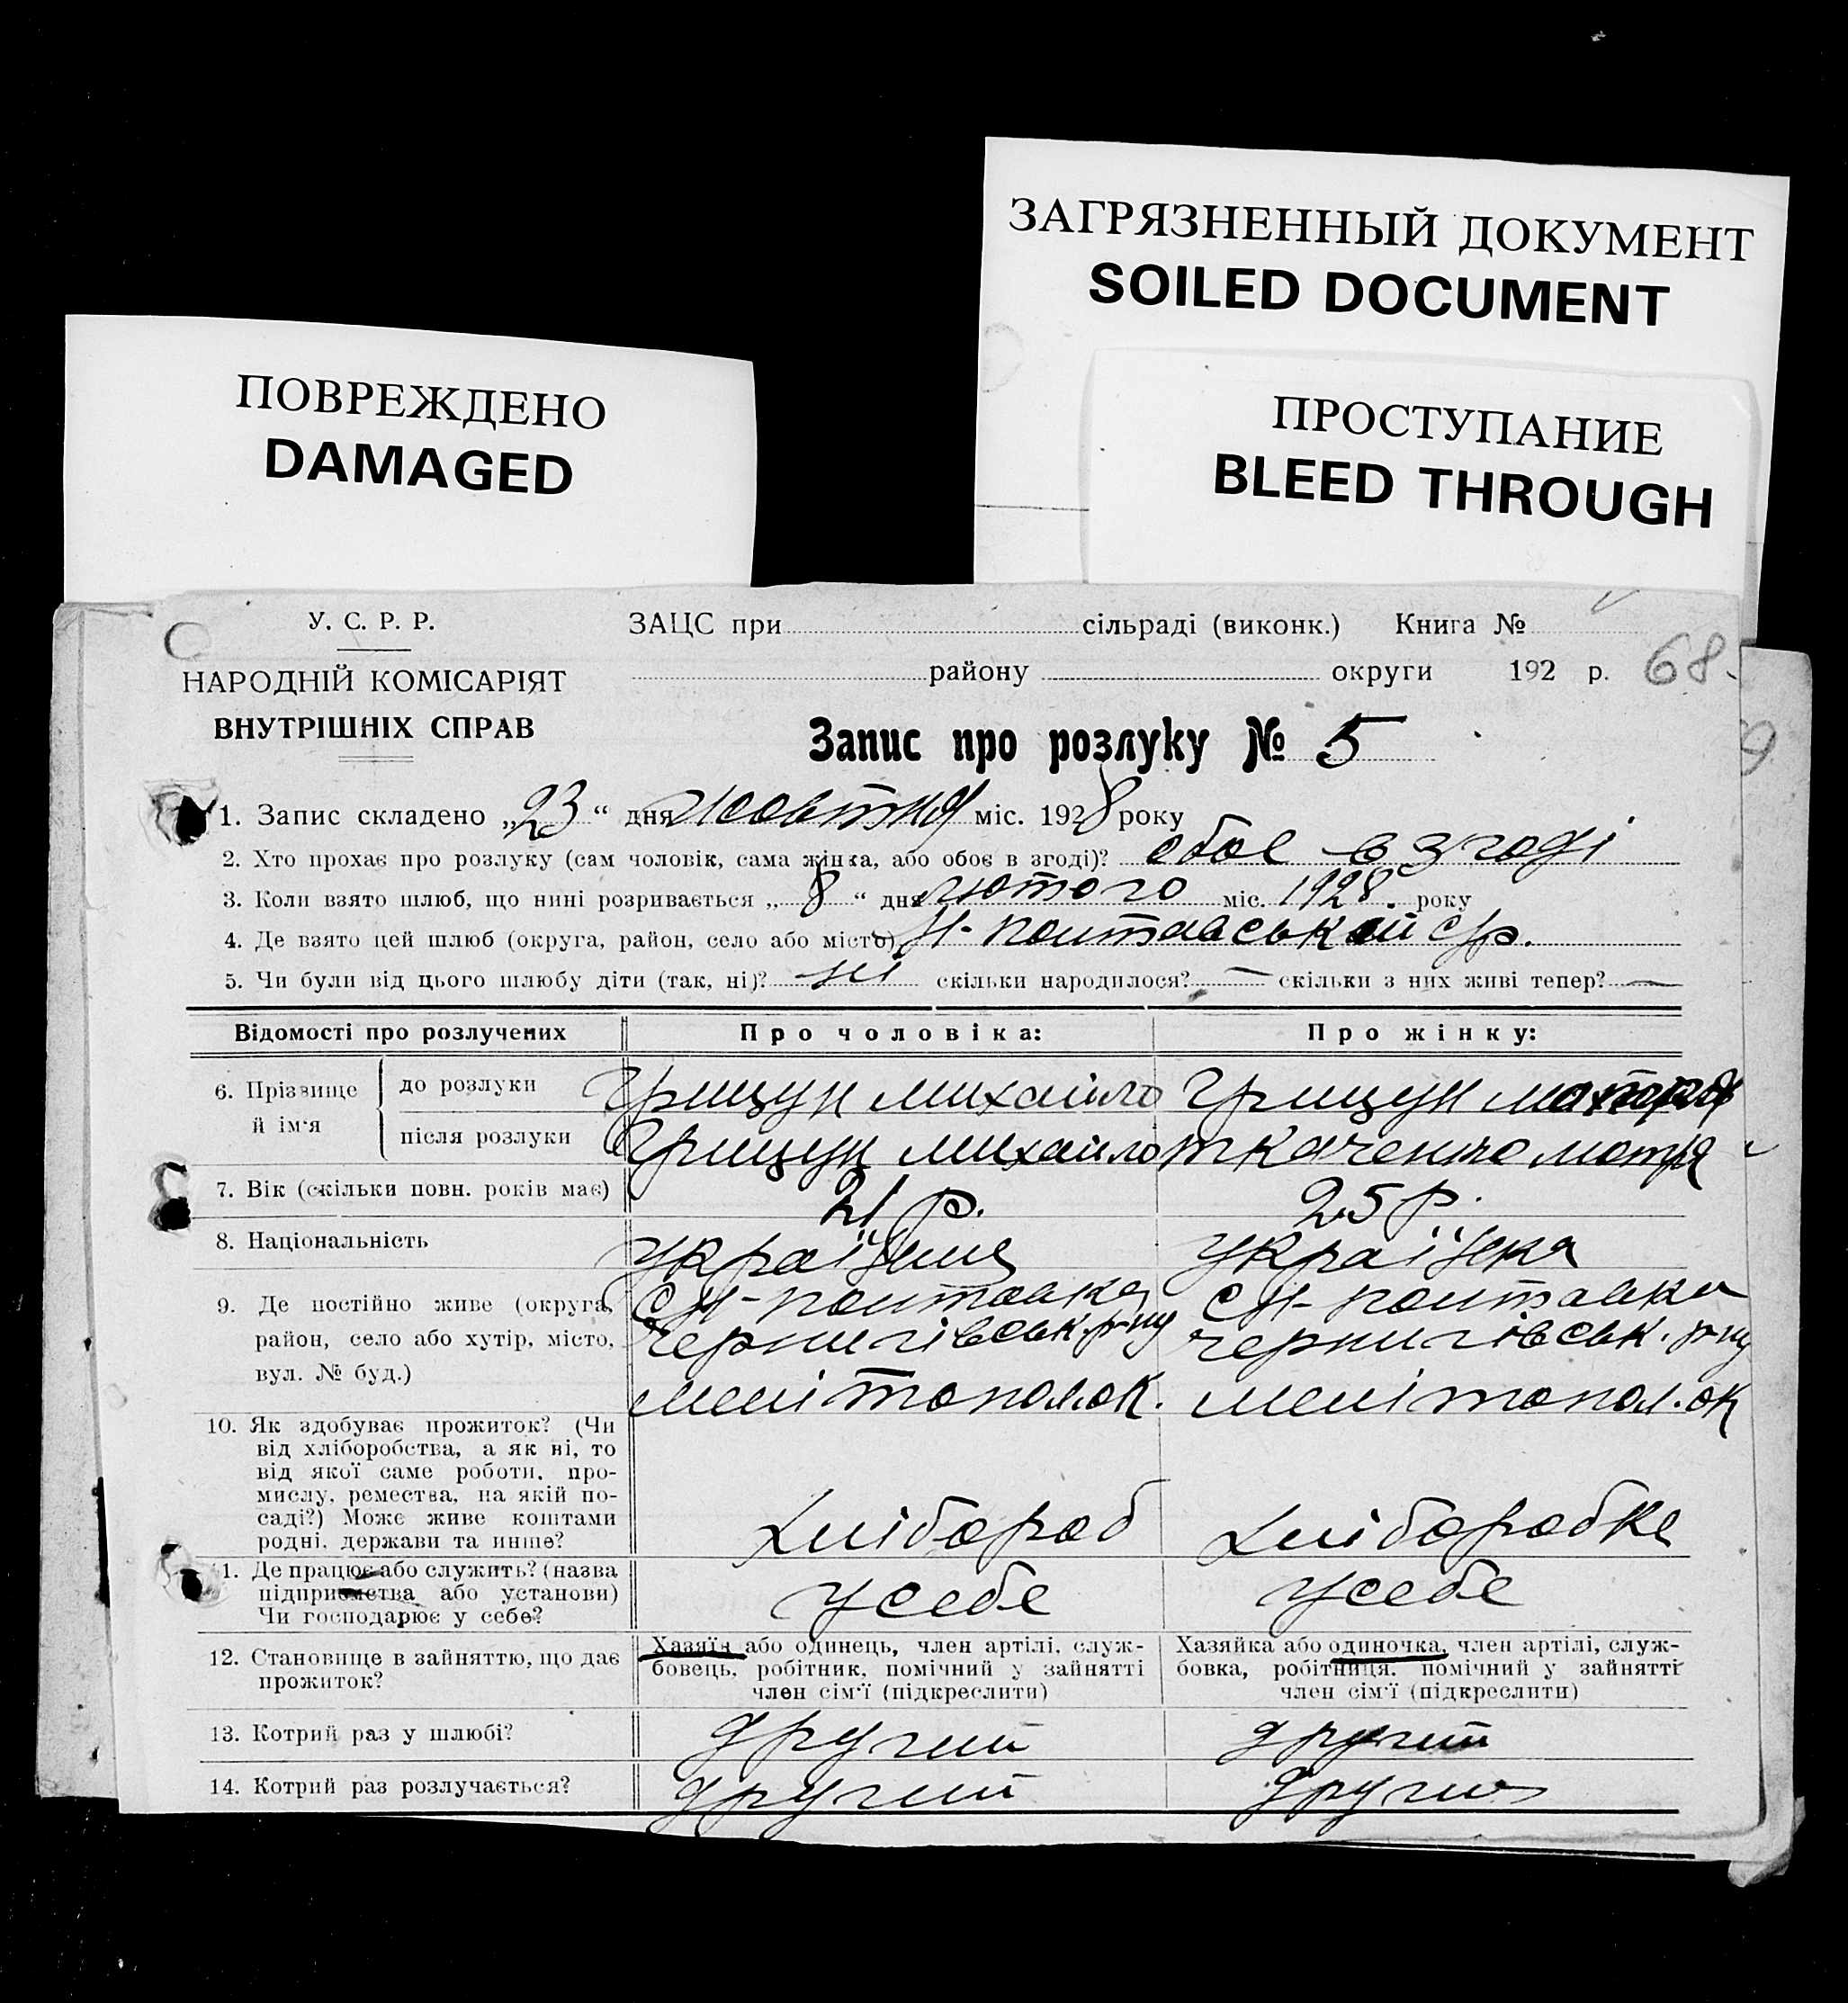 ЗАГРЯЗНЕННЫЙ ДОКУМЕНТ
SOILED DOCUMENT
ПОВРЕЖДЕНО
DAMAGED
ПРОСТУПАНИЕ
BLEED THROUGH
У. С. Р. Р.
НАРОДНІЙ КОМІСАРІЯТ
ВНУТРІШНІХ СПРАВ
ЗАЦС при сільраді (виконк.) Книга №
району округи 192 р. 68
Запис про розлуку № 5
1. Запис складено „23“ дня жовтня міс. 1928 року
2. Хто прохає про розлуку (сам чоловік, сама жінка, або обоє в згоді)? обое в згоді
3. Коли взято шлюб, що нині розривається „8“ дня лютого міс. 1928. року
4. Де взято цей шлюб (округа, район, село або місто) Н-полтавській с/р.
5. Чи були від цього шлюбу діти (так, ні)? ні скільки народилося? — скільки з них живі тепер? —
Відомості про розлучених Про чоловіка: Про жінку:
6. Прізвище й ім'я
до розлуки Грицун михайло Грицун мотря
після розлуки Грицун михайло ткаченко мотря
7. Вік (скільки повн. років має) 21 р. 25 р.
8. Національність українець українка
9. Де постійно живе (округа, район, село або хутір, місто, вул. № буд.)
с Н-полтавка с Н-полтавка
чернигівськ. р-ну чернигівськ. р-ну
мелітопол. ок. мелітопол. ок
10. Як здобуває прожиток? (Чи
від хліборобства, а як ні, то
від якої саме роботи, про-
мислу, ремества, на якій по-
саді?) Може живе коштами
родні, держави та инше?
хлібороб хлібаробка
11. Де працює або служить? (назва
підприємства або установи)
Чи господарює у себе?
усебе усебе
12. Становище в зайняттю, що дає
прожиток?
Хазяїн або одинець, член артілі, служ-
бовець, робітник, помічний у зайнятті
член сім'ї (підкреслити)
Хазяйка або одиночка, член артілі, служ-
бовка, робітниця, помічний у зайнятті
член сім'ї (підкреслити)
13. Котрий раз у шлюбі? другий другий
14. Котрий раз розлучається? другий другий